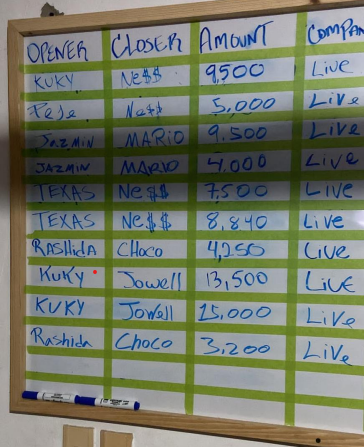 OPENER CLOSER AMOUNT COMPAN
KUKY Ne$$ 9,500 Live
PePe Ne$$ 5,000 Live
JAZMIN MARIO 9,500 Live
JAZMIN MARIO 4,000 Live
TEXAS Ne$$ 7,500 Live
TEXAS Ne$$ 8,840 Live
RASHIDA CHOCO 4,250 Live
KUKY Jowell 13,500 Live
KUKY Jowell 15,000 Live
Rashida Choco 3,200 Live